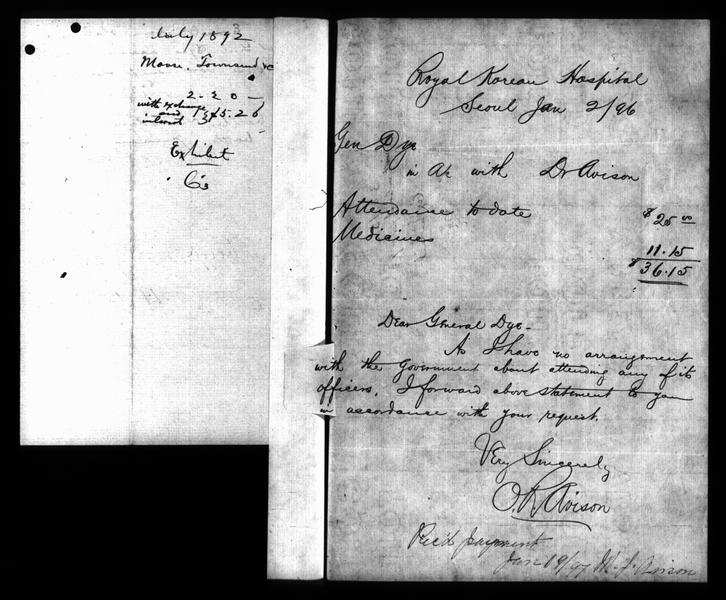 July 1892
Morse, Townsend &c
2 - 20 -
with exchange
and 1845.26
interest
Exhibit
Royal Korean Hospital
Seoul Jan 2/96
Gen Dye
in a/c with Dr Avison
Attendance to date $25 00
Medicines 11.15
$36.15
Dear General Dye -
As I have no arrangement
with the Government about attending any of its
officers, I forward above statement to you
in accordance with your request.
Very Sincerely
O. R. Avison
Rec'd payment
Jan 19/97 M. J. Avison